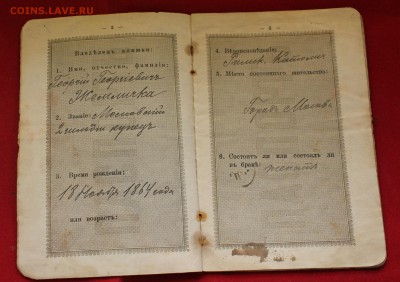 COINS.LAVE.RU
Владѣлецъ книжки:
1. Имя, отчество, фамилія:
Георгій Георгіевичъ
Жемличка
2. Званіе: Московскій
2 гильдіи купецъ
3. Время рожденія:
1864 года
или возрастъ:
4. Вѣроисповѣданіе:
Римск.
5. Мѣсто постояннаго жительства:
Городъ Москва
6. Состоитъ ли или состоялъ ли
въ бракѣ:
женатъ